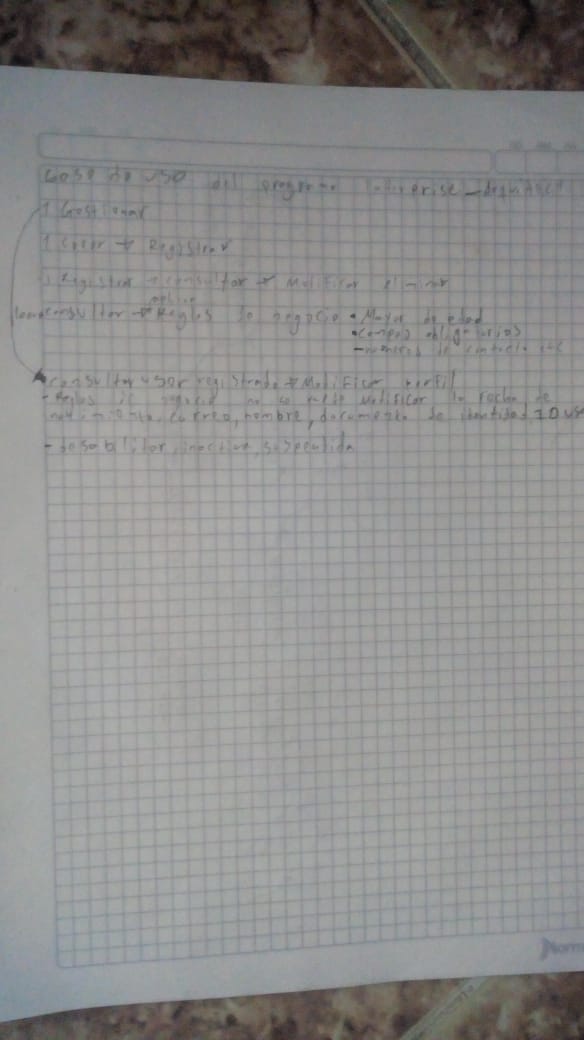 Caso de uso del programa
1 Gestionar
1 Crear → Registrar
Registrar → consultar → Modificar eliminar
consultar → Reglas de negocio • Mayor de edad
• campos obligatorios
- numeros de contacto
consultar usar registrado → Modificar perfil
- Reglas de negocio no se puede Modificar la fecha de
nacimiento, correo, nombre, documento de identidad
- desabilitar, inactiva, suspendida
Norma